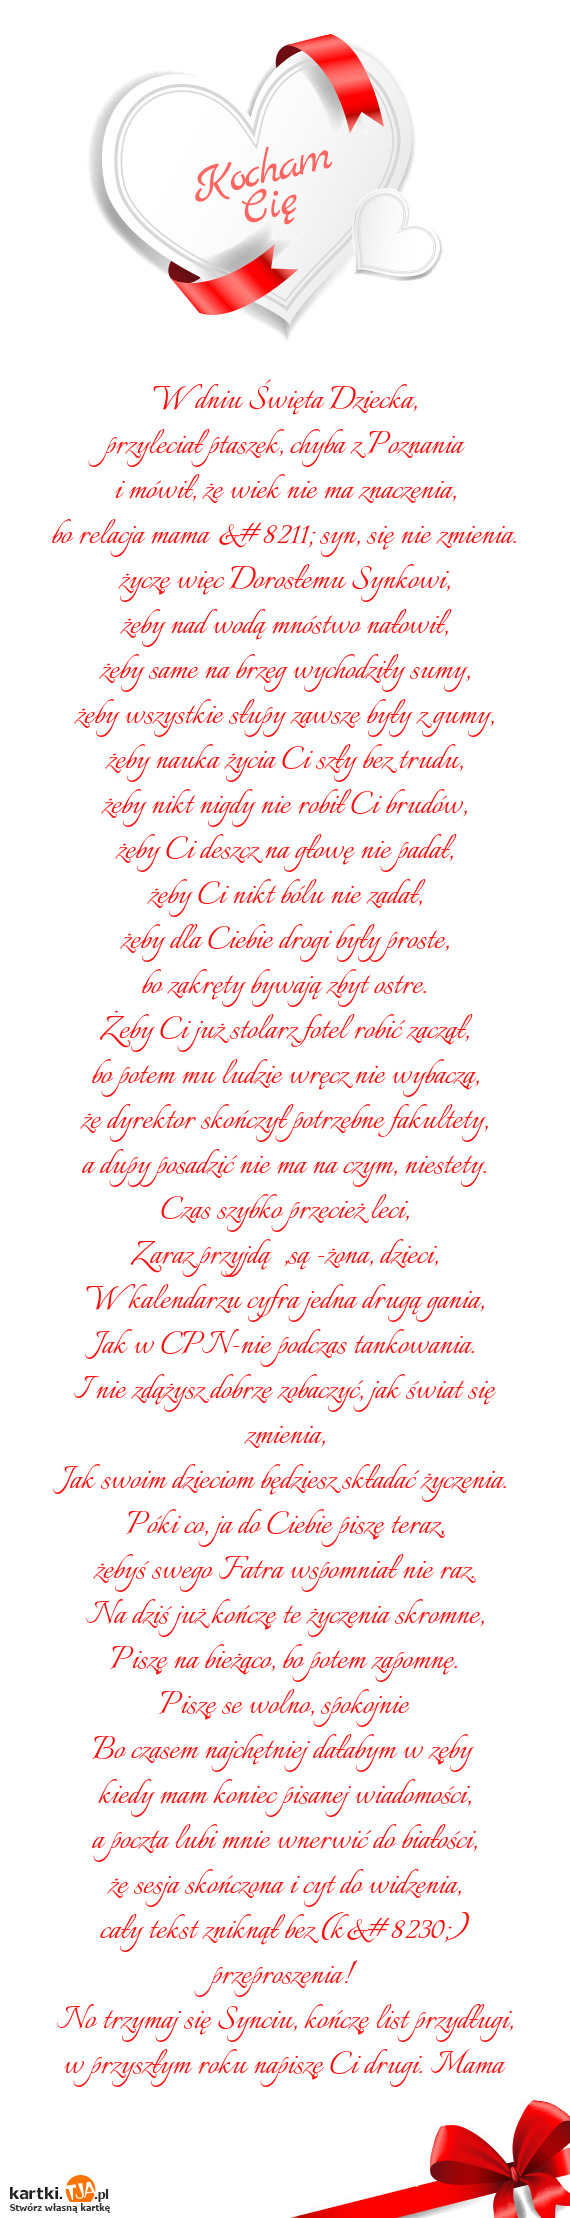 Kocham
Cię
W dniu Święta Dziecka,
przyleciał ptaszek, chyba z Poznania
i mówił, że wiek nie ma znaczenia,
bo relacja mama &#8211; syn, się nie zmienia.
życzę więc Dorosłemu Synkowi,
żeby nad wodą mnóstwo nałowił,
żeby same na brzeg wychodziły sumy,
żeby wszystkie słupy zawsze były z gumy,
żeby nauka życia Ci szły bez trudu,
żeby nikt nigdy nie robił Ci brudów,
żeby Ci deszcz na głowę nie padał,
żeby Ci nikt bólu nie zadał,
żeby dla Ciebie drogi były proste,
bo zakręty bywają zbyt ostre.
Żeby Ci już stolarz fotel robić zaczął,
bo potem mu ludzie wręcz nie wybaczą,
że dyrektor skończył potrzebne fakultety,
a dupy posadzić nie ma na czym, niestety.
Czas szybko przecież leci,
Zaraz przyjdą ,są -żona, dzieci,
W kalendarzu cyfra jedna drugą gania,
Jak w CPN-nie podczas tankowania.
I nie zdążysz dobrze zobaczyć, jak świat się
zmienia,
Jak swoim dzieciom będziesz składać życzenia.
Póki co, ja do Ciebie piszę teraz,
żebyś swego Fatra wspomniał nie raz.
Na dziś już kończę te życzenia skromne,
Piszę na bieżąco, bo potem zapomnę.
Piszę se wolno, spokojnie
Bo czasem najchętniej dałabym w zęby
kiedy mam koniec pisanej wiadomości,
a poczta lubi mnie wnerwić do białości,
że sesja skończona i cyt do widzenia,
cały tekst zniknął bez (k&#8230;)
przeproszenia!
No trzymaj się Synciu, kończę list przydługi,
w przyszłym roku napiszę Ci drugi. Mama
kartki.TJA.pl
Stwórz własną kartkę